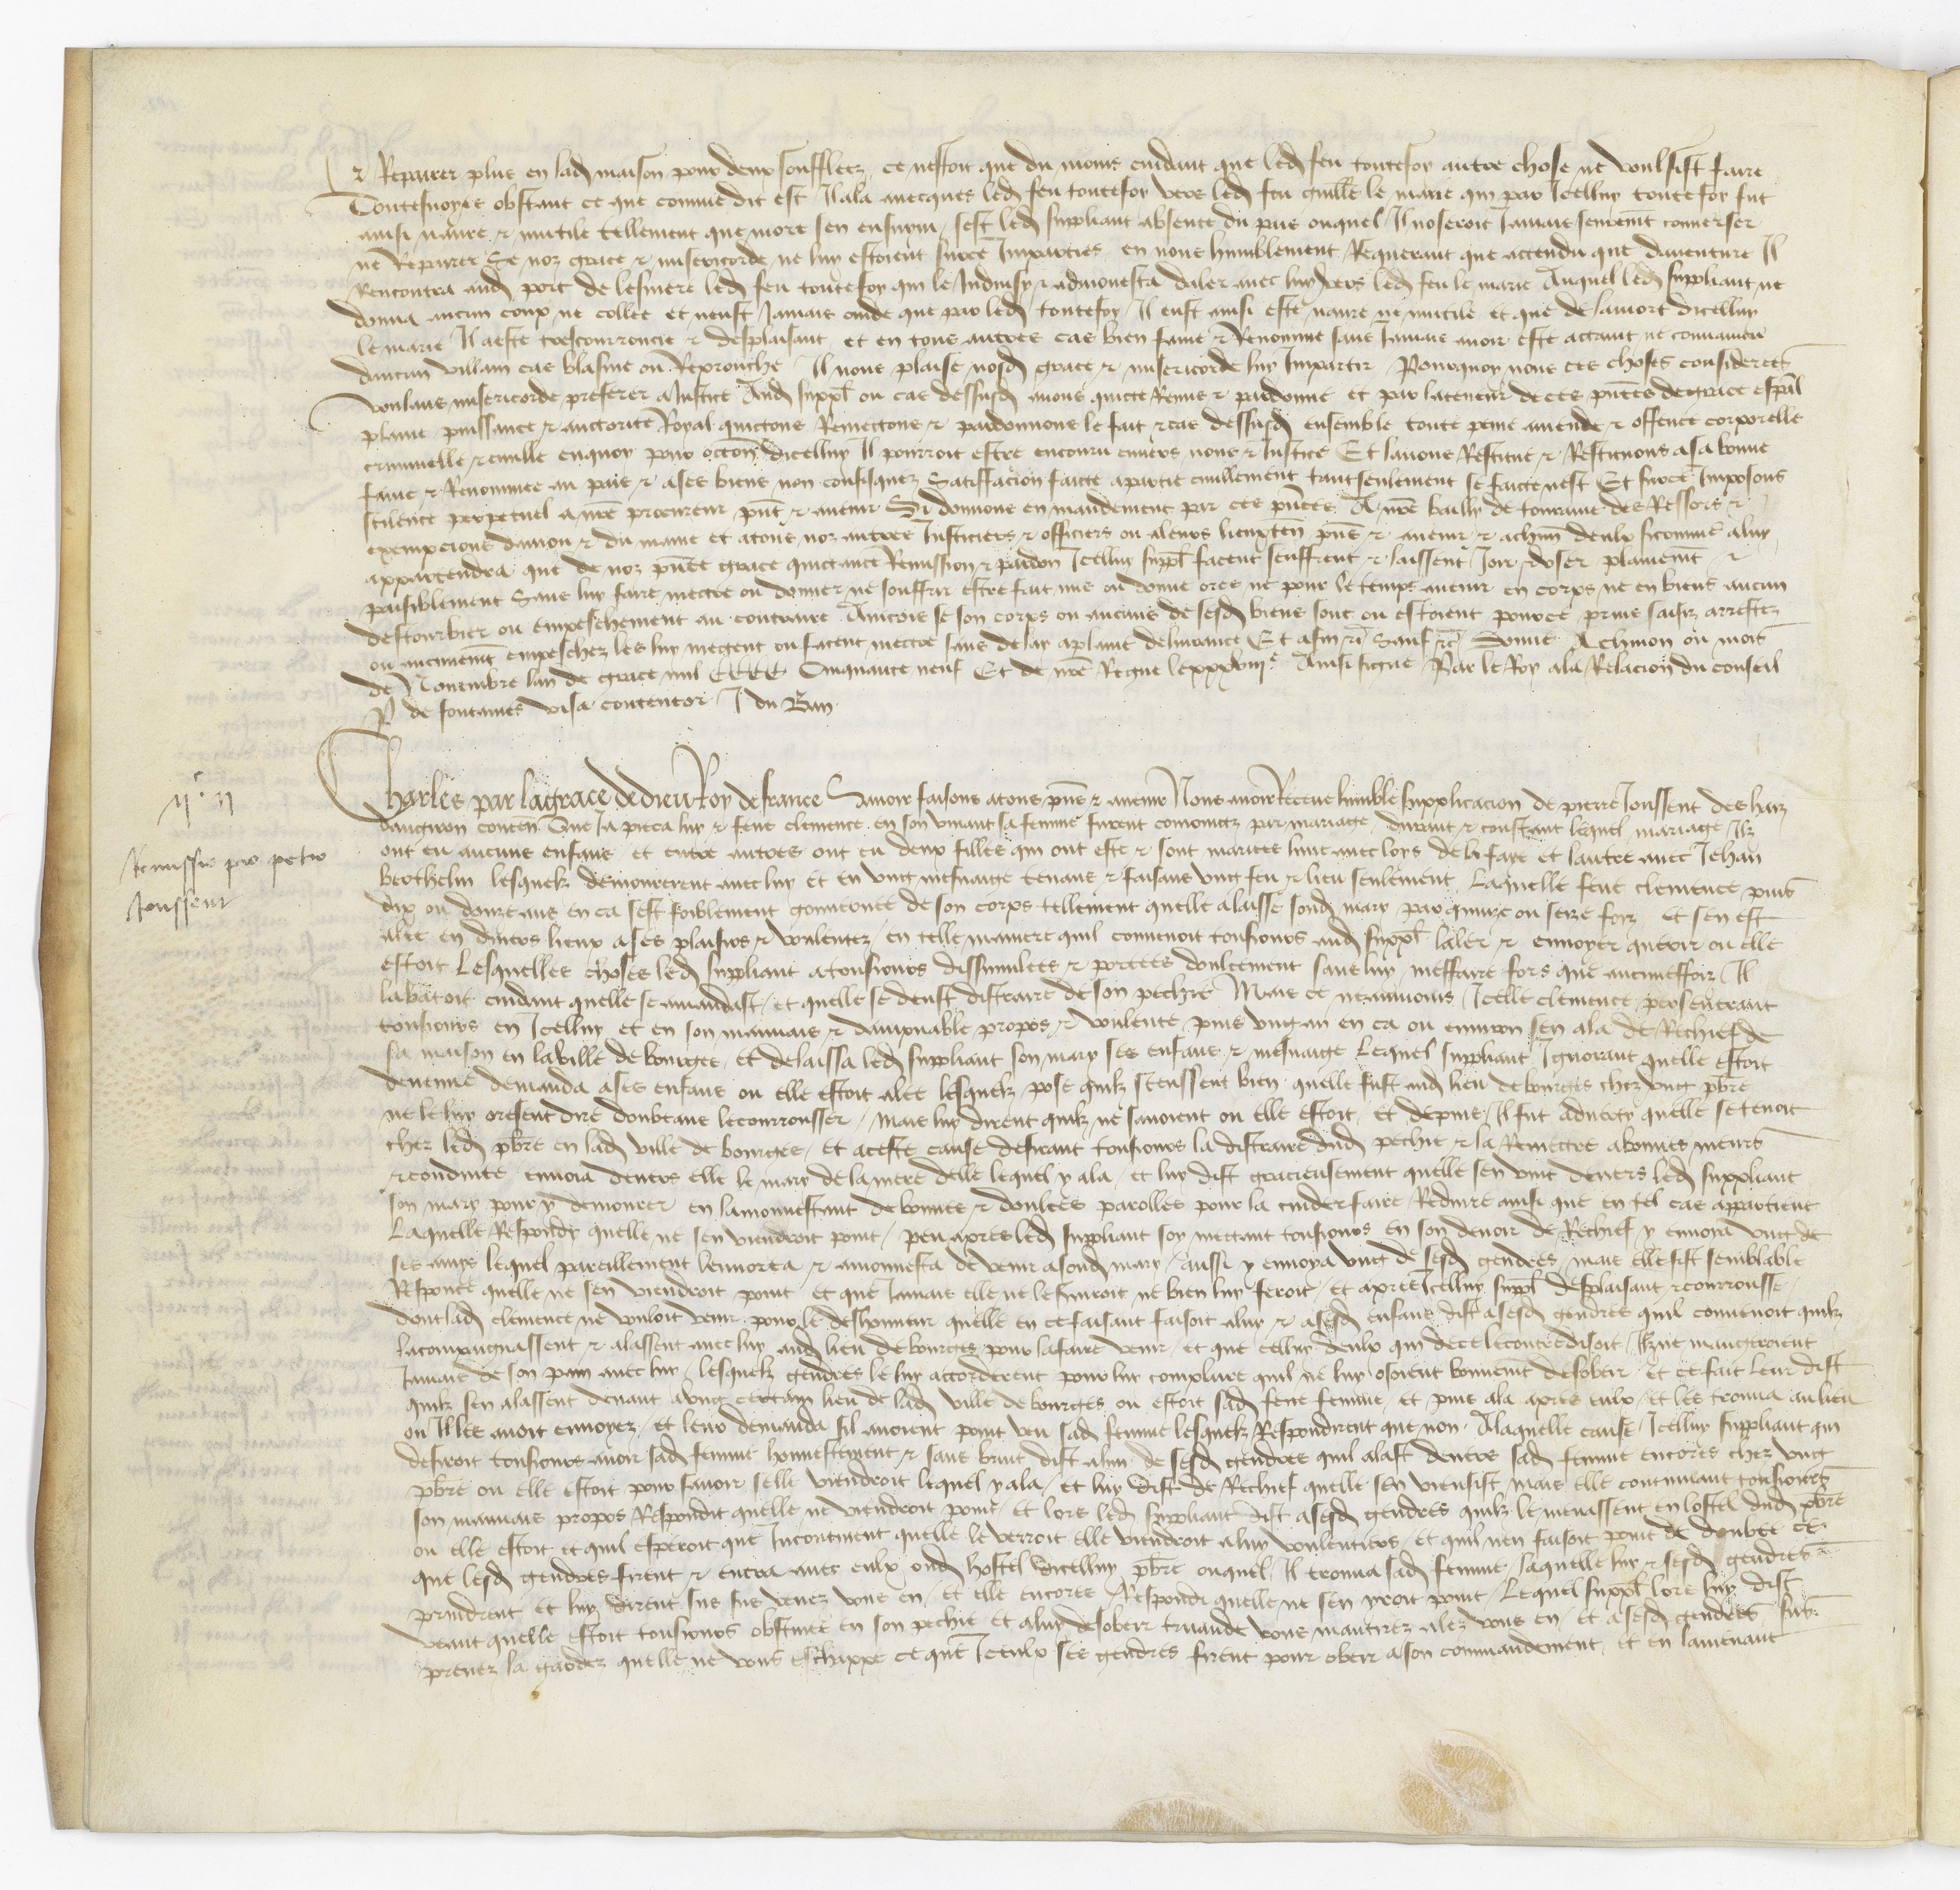 & Reparer plus en lad maison pour deux souffletz, ce nestoit que du moins cuidant que led feu toutefoy autre chose ne voulsist faire
Toutesvoyes obstant ce que comme dit est Il ala avecques led feu toutefoy vers led feu guille le marie qui par Icelluy toutefoy fut
ainsi navre & mutile tellement que mort sen ensuyvi, sest led suppliant absente du pais ouquel Il noseroit Jamais seurement converser
ne Reparer Se noz grace & misericorde ne luy estoient sur ce Imparties en nous humblement Requerant que actendu que daventure Il
Rencontra aud port de lesmere led feu toutefoy qui le Induisy & admonesta daler avec luy vers led feu le marie Auquel led suppliant ne
donna aucun coup ne collee et neust Jamais cuide que par led toutefoy Il eust ainsi este navre ne mutile et que de la mort dicelluy
le marie Il a este tres courroucie & desplaisant et en tous autres cas bien fame & Renomme sans Jamais avoir este actaint ne convaincu
daucun villain cas blasme ou Reprouche Il nous plaise nosd grace & misericorde luy Impartir Pourquoy nous ces choses considerees
voulans misericorde preferer a Justice Aud suppl ou cas dessusd avons quicte Remis & pardonne et par la teneur de ces pntes de grace espal
plaine puissance & auctorite Royal quictons Remectons & pardonnons le fait & cas dessusd ensemble toute peine amende & offence corporelle
criminelle & civille en quoy pour occon dicelluy Il pourroit estre encouru envers nous & Justice Et lavons Restitue & Restituons a sa bonne
fame & Renommee au pais & a ses biens non confisquez Satisfacion faicte a partie civillement tant seulement se faicte nest Et sur ce Imposons
scilence perpetuel a nre procureur pnt & avenir Si donnons en mandement par ces pntes A nre bailly de touraine des Ressors &
exempcions danjou & du maine et a tous noz autres Justiciers & officiers ou a leurs lieuxten pns & avenir & a chun deulx si comme a luy
appartendra que de noz pnte grace quictance Remission & pardon Icelluy suppl facent seuffrent & laissent Joir & user plainemt &
paisiblement Sans luy faire mectre ou donner ne souffrir estre fait mis ou donne ores ne pour le temps avenir en corps ne en biens aucun
destourbier ou empeschement au contraire Aincois se son corps ou aucuns de sesd biens sont ou estoient pour ce prins saisiz arrestez
ou aucunemt empeschez les luy mectent ou facent mectre sans delay a plaine delivrance Et afin &c Sauf &c Donne A chinon ou mois
de Novembre lan de grace mil CCCC Cinquante neuf Et de nre Regne le xxxviije Ainsi signe Par le Roy a la Relacion du conseil
P de fontaines visa contentor J du Ban
Charles par la grace de dieu Roy de france Savoir faisons a tous pns & avenir Nous avoir Receue humble supplicacion de pierre Joussent des haiz
dangron conten Que Ja pieca luy & feue clemence en son vivant sa femme furent conjoinctz par mariage, durant & constant lequel mariage Ilz
ont eu aucuns enfans et entre autres ont eu deux filles qui ont este & sont mariees lune avec loys de la faye et lautre avec Jehan
berthelin lesquelz demourerent avec luy et en ung mesnaige tenans & faisans ung feu & lieu seulement, Laquelle feue clemence puis
dix ou douze ans en ca sest foiblement gouvernee de son corps tellement quelle a laisse sond mary par quinze ou seize foiz et sen est
alee en divers lieux a ses plaisirs & voulentez, en telle maniere quil convenoit tousjours aud suppl laler & envoyer querir ou elle
estoit Lesquelles choses led suppliant a tousjours dissimulees & portees doulcement sans luy meffaire fors que aucuneffoiz Il
la batoit cuidant quelle se amendast, et quelle se deust distraire de son pechie Mais ce neantmoins Icelle clemence perseverant
tousjours en Icelluy et en son mauvais & dampnable propos & voulente puis ung an en ca ou environ sen ala de Rechief de
sa maison en la ville de bourges, et delaissa led suppliant son mary ses enfans & mesnaige Lequel suppliant Ignorant quelle estoit
devenue demanda a ses enfans ou elle estoit alee lesquelz pose quilz sceussent bien quelle fust aud lieu de bourges chez ung pbre
ne le luy oserent dire doubtans le courrousser, Mais luy dirent quilz ne savoient ou elle estoit, et depuis Il fut adverty quelle se tenoit
chez led pbre en lad ville de bourges, et a ceste cause desirant tousjours la distraire dud pechie & la Remectre a bonnes meurs
& conduite envoia devers elle le mary de la mere delle lequel y ala, et luy dist gracieusement quelle sen vint devers led suppliant
son mary pour y demourer en lamonnestant de bonnes & doulces parolles pour la cuider faire Reduire ainsi que en tel cas appartient
Laquelle Respondy quelle ne sen viendroit point, peu apres led suppliant soy mectant tousjours en son devoir de Rechief y envoia ung de
ses amys lequel pareillement lennorta & amonnesta de venir a sond mary, aussi y envoya ung de sesd gendres, mais elle fist semblable
Responce quelle ne sen viendroit point et que Jamais elle ne le serviroit ne bien luy feroit, et apres Icelluy suppl desplaisant & courrousse
dont lad clemence ne vouloit venir pour le deshonneur quelle en ce faisant faisoit a luy & a sesd enfans dist a sesd gendres quil convenoit quilz
lacompaignassent & alassent avec luy aud lieu de bourges pour la faire venir, et que celluy deulx qui de ce le contredisoit Ilz ne mangeroient
Jamais de son pain avec luy, lesquelz gendres le luy accorderent pour luy complaire quil ne luy osoient bonnemt desobeir et ce fait leur dist
quilz sen alassent devant a ung certain lieu de lad ville de bourges ou estoit sad feue femme, et puis ala apres eulx et les trouva au lieu
ou Il les avoit envoyez, et leur demanda sil avoient point veu sad femme lesquelz Respondirent que non. A laquelle cause Icelluy suppliant qui
desiroit tousjours avoir sad femme honnestement & sans bruit dist a lun de sesd gendres quil alast devers sad femme encores chez ung
pbre ou elle estoit pour savoir selle viendroit lequel y ala, et luy dist de Rechief quelle sen venist, mais elle continuant tousjours
son mauvais propos Respondit quelle ne viendroit point, et lors led suppliant dist a sesd gendres quilz le menassent en lostel dud pbre
ou elle estoit et quil esperoit que Incontinent quelle le verroit elle viendroit a luy voulentiers, et quil nen faisoit point de doubte ce
que lesd gendres firent & entra avec eulx oud hostel dicelluy pbre ouquel Il trouva sad femme, laquelle luy & sesd gendres
prindrent et luy dirent sus sus venez vous en, et elle encores Respondi quelle ne sen yroit point, Lequel suppl lors luy dist
veant quelle estoit tousjours obstinee en son pechie et a luy desobeir truande vous mantirez alez vous en, et a sesd gendres sus
prenez la gardez quelle ne vous eschappe ce que Iceulx ses gendres firent pour obeir a son commandement, et en lamenant
Remissio pro petro
Joussent